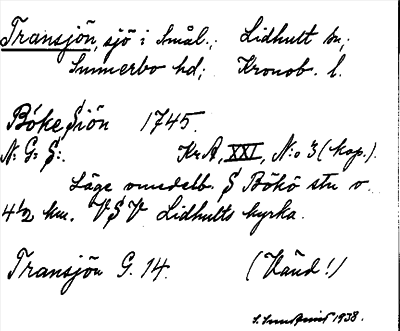 Transjön, sjö i Smål.; Lidhult sn;
Sunnerbo hd; Kronob. l.
Böke Siön 1745.
N: G: S: KrA, XXI, N:o 3 (kop.).
Läge omedelb. S Bökö stn o.
4 1/2 km. VSV Lidhults kyrka.
Transjön G. 14. (Vänd!)
1938.